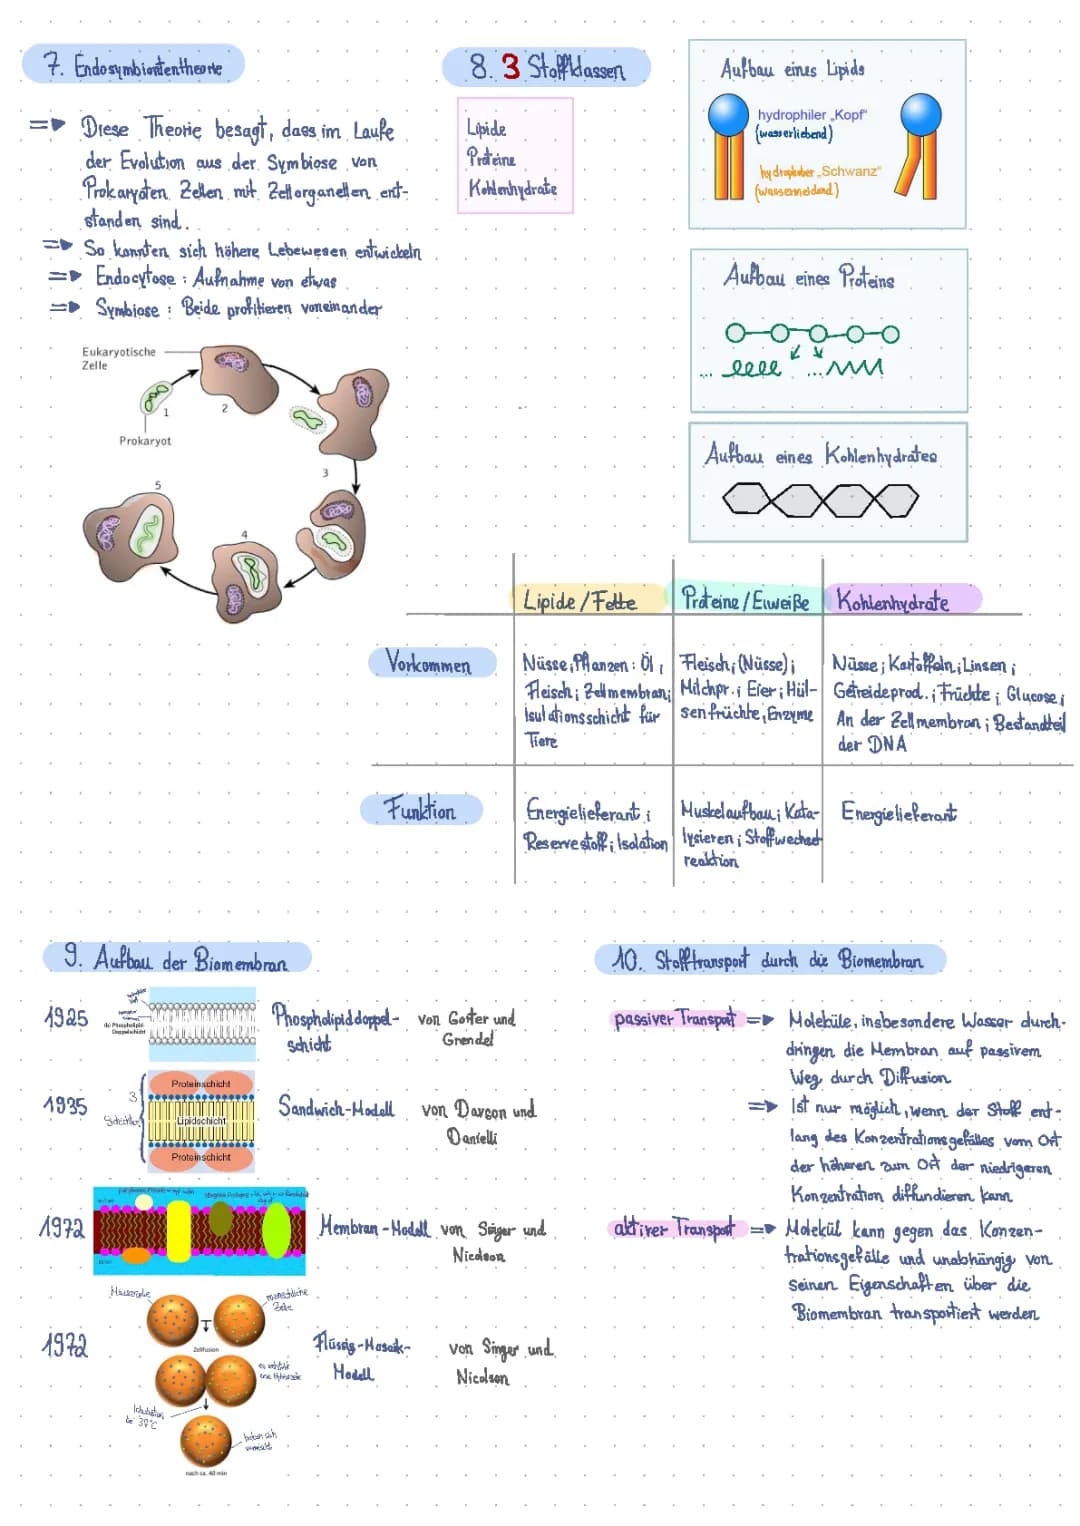 7. Endosymbiontentheorie
=> Diese Theorie besagt, dass im Laufe
der Evolution aus der Symbiose von
Prokaryoten Zellen mit Zellorganellen ent-
standen sind.
=> So konnten sich höhere Lebewesen entwickeln
=> Endocytose : Aufnahme von etwas
=> Symbiose : Beide profitieren voneinander
Eukaryotische
Zelle
1
2
Prokaryot
3
4
5
8. 3 Stoffklassen
Lipide
Proteine
Kohlenhydrate
Aufbau eines Lipids
hydrophiler „Kopf"
(wasserliebend)
hydrophober „Schwanz"
(wassermeidend)
Aufbau eines Proteins
Aufbau eines Kohlenhydrates
Lipide / Fette
Proteine / Eiweiße
Kohlenhydrate
Vorkommen
Nüsse; Pflanzen: Öl;
Fleisch; Zellmembran;
Isulationsschicht für
Tiere
Fleisch; (Nüsse);
Milchpr.; Eier; Hül-
senfrüchte, Enzyme
Nüsse; Kartoffeln; Linsen;
Getreideprod.; Früchte; Glucose;
An der Zellmembran; Bestandteil
der DNA
Funktion
Energielieferant;
Reservestoff; Isolation
Muskelaufbau; Kata-
lysieren; Stoffwechsel
reaktion
Energielieferant
9. Aufbau der Biomembran
1925
Phospholipiddoppel-
schicht
von Gorter und
Grendel
1935
3
Proteinschicht
Lipidschicht
Proteinschicht
Sandwich-Modell
von Davson und
Danielli
1972
Membran-Modell von Singer und
Nicolson
1972
Mauszelle
menschliche
Zelle
Zellfusion
Inkubation
bei 37°C
nach ca. 40 min
Flüssig-Mosaik-
Modell
von Singer und
Nicolson
10. Stofftransport durch die Biomembran
passiver Transport => Moleküle, insbesondere Wasser durch-
dringen die Membran auf passivem
Weg durch Diffusion
=> Ist nur möglich, wenn der Stoff ent-
lang des Konzentrationsgefälles vom Ort
der höheren zum Ort der niedrigeren
Konzentration diffundieren kann
aktiver Transport => Molekül kann gegen das Konzen-
trationsgefälle und unabhängig von
seinen Eigenschaften über die
Biomembran transportiert werden